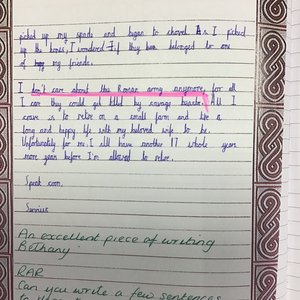 picked up my spade and began to shovel. As I picked
up the bones, I wondered if they had belonged to one
of my friends.
I don't care about the Roman army anymore, for all
I care they could get killed by savage beasts. All I
crave is to retire on a small farm and live a
long and happy life with my beloved wife to be.
Unfortunately for me, I still have another 17 whole years
more years before I'm allowed to retire.
Speak soon,
An excellent piece of writing
Bethany!
RAR
Can you write a few sentences